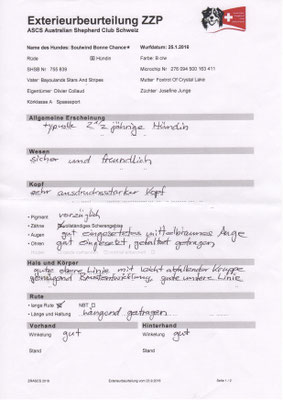 Exterieurbeurteilung ZZP
ASCS Australian Shepherd Club Schweiz
Name des Hundes: Soulwind Bonne Chance Wurfdatum: 25.1.2016
Rüde ☒ Hündin Farbe: B c/w
SHSB Nr 755 839 Microchip Nr 276 094 500 163 411
Vater: Bayoulands Stars And Stripes Mutter: Foxtrot Of Crystal Lake
Eigentümer Olivier Gollaud Züchter Josefine Junge
Körklasse A Spasssport
Allgemeine Erscheinung
typvolle 2 1/2 jährige Hündin
Wesen
sicher und freundlich
Kopf
sehr ausdrucksstarker Kopf
• Pigment vorzüglich
• Zähne vollständiges Scherengebiss
• Augen gut eingesetztes mittelbraunes Auge
• Ohren gut eingesetzt, gefaltet getragen
Hals und Körper
gute obere Linie mit leicht abfallender Kruppe
genügend Brustentwicklung, gute untere Linie
Rute
• lange Rute ☒ NBT ☐
• Länge und Haltung hängend getragen
Vorhand Hinterhand
Winkelung gut Winkelung gut
Stand Stand
Seite 1 / 2